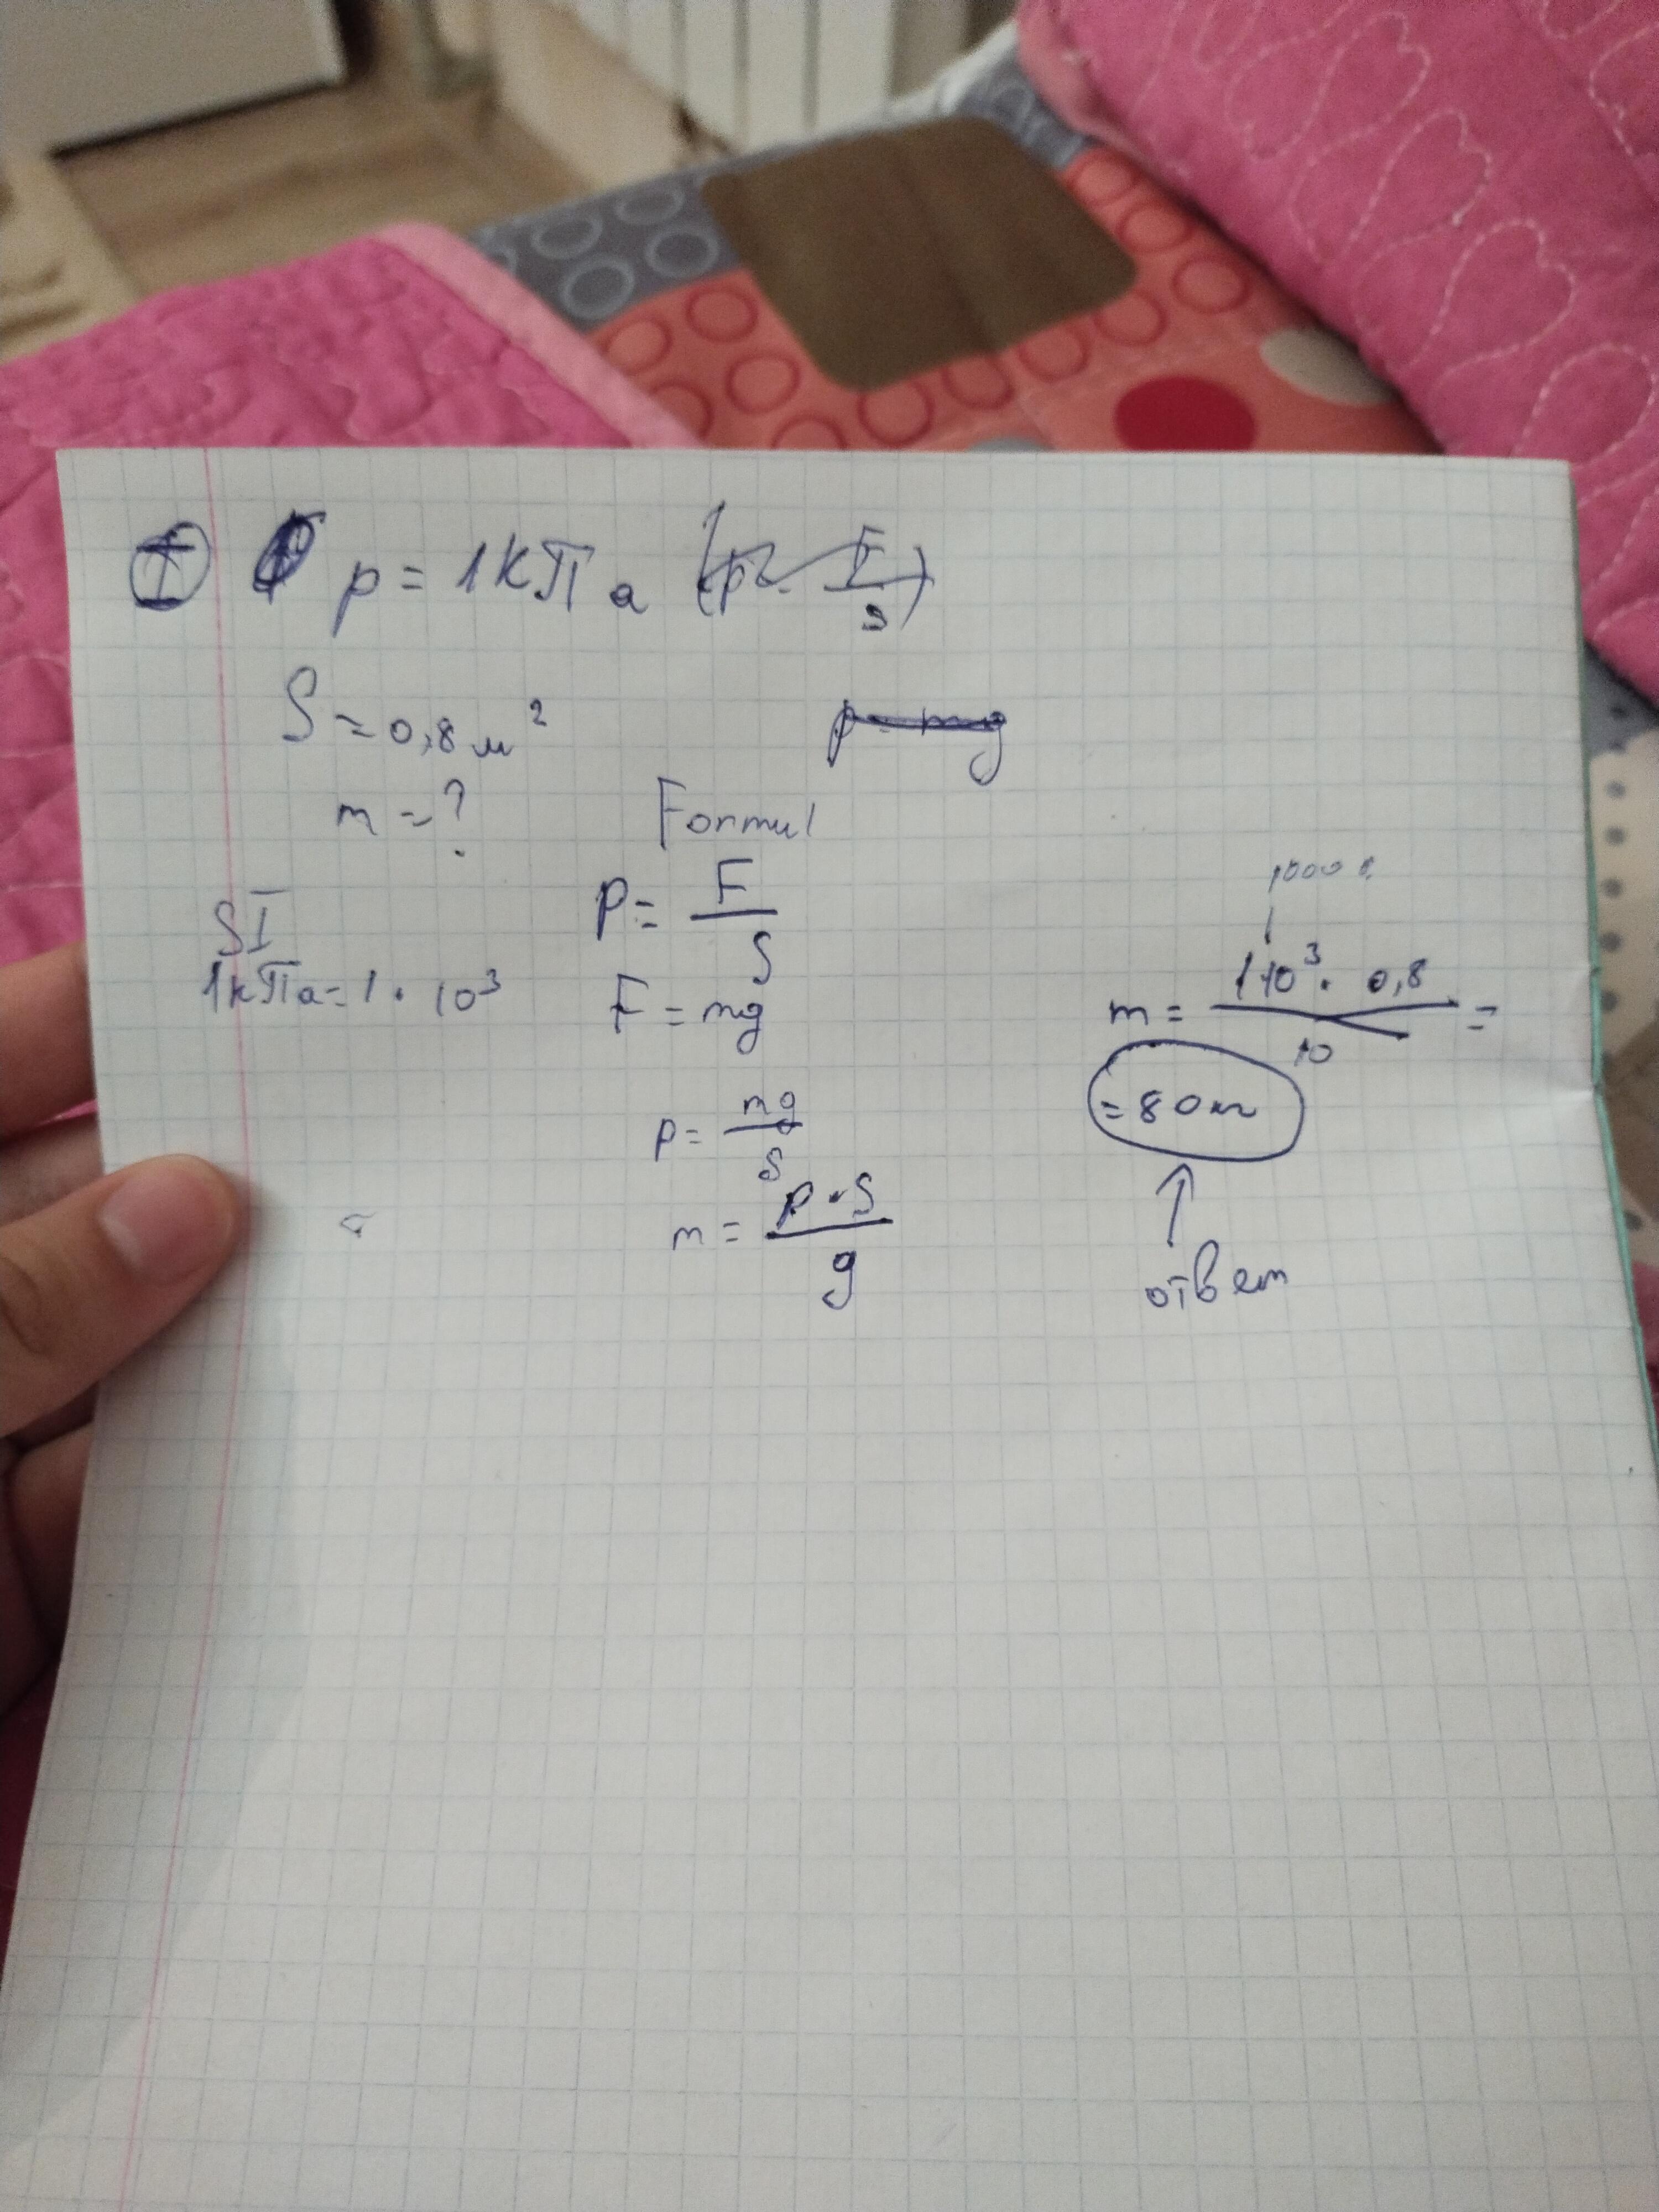 I p = 1кПа (p = F/s)
S = 0,8 м²
p = mg
m = ?
Formul
p = F/S
SI
1кПа = 1 · 10³
F = mg
p = mg/s
m = p · S/g
1000
m = 1·10³ · 0,8/10 =
= 80кг
ответ